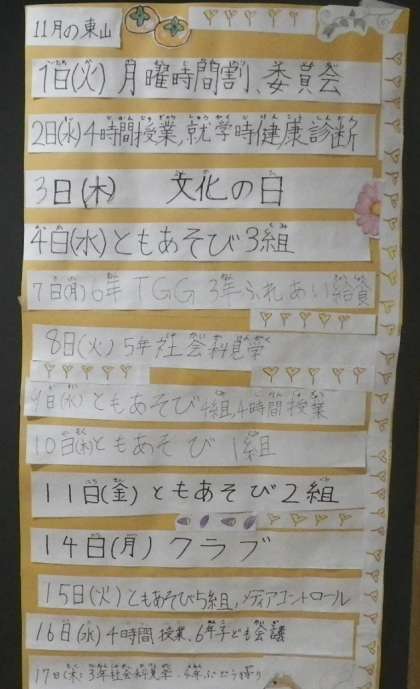 11月の東山
1日(火) 月曜時間割、委員会
2日(水)4時間授業,就学時健康診断
3日(木) 文化の日
4日(水)ともあそび3組
7日(月)6年 TGG 3年ふれあい給食
8日(火)5年社会科見学
9日(水)ともあそび4組,4時間授業
10日(木)ともあそび1組
11日(金)ともあそび2組
14日(月)クラブ
15日(火)ともあそび5組,メディアコントロール
16日(水)4時間授業、6年子ども会議
17日(木)3年社会科見学